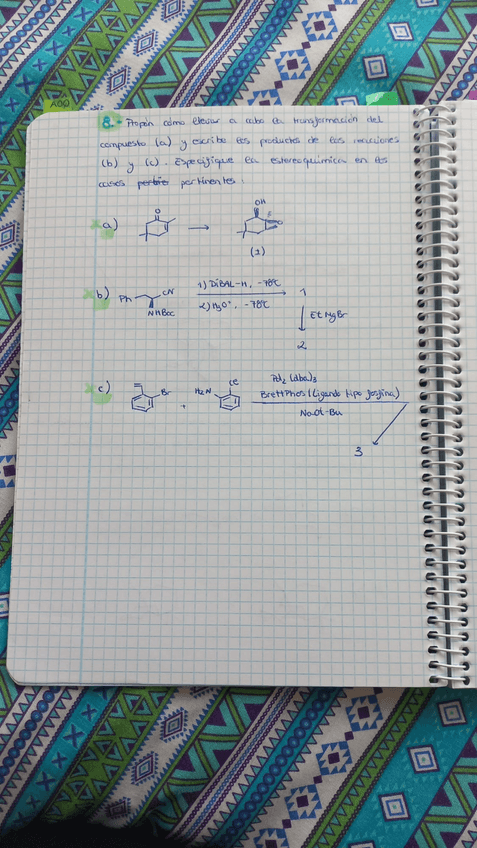 ADQ
8. Propón cómo llevar a cabo la transformación del
compuesto (a) y escribe los productos de las reacciones
(b) y (c). Especifique la estereoquímica en los
casos pertinentes:
a)
O
OH
(1)
b)
Ph
CN
NHBoc
1) DIBAL-H, -78°C
2) H3O+, -78°C
1
EtMgBr
2
c)
Br
+
H2N
Cl
Pd2(dba)3
BrettPhos (Ligando tipo fosfina)
NaOt-Bu
3